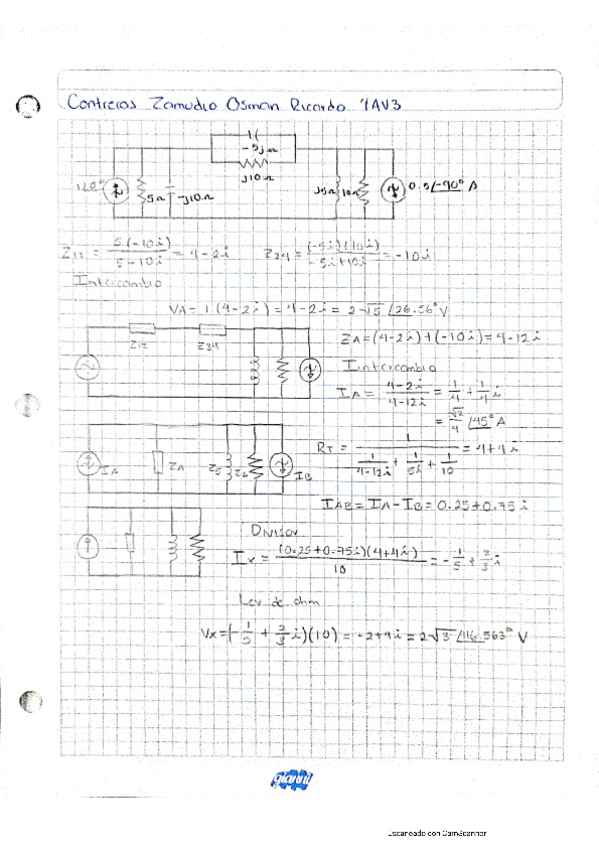 Contreras Zamudio Osman Ricardo 1AV3
-5jΩ
j10Ω
1∠0°
5Ω
-j10Ω
j5Ω
10Ω
0.5∠-90° A
Z12 = 5(-10i) / 5-10i = 4-2i
Z34 = (-5i)(10i) / -5i+10i = -10i
Intercambio
VA = 1(4-2i) = 4-2i = 2√5 ∠26.56° V
Z12
Z34
ZA = (4-2i)+(-10i) = 4-12i
Intercambio
IA = 4-2i / 4-12i = 1/4 + 1/4 i
= √2/4 ∠45° A
IA
ZA
Z5
Z6
IB
RT = 1 / 1/4-12i + 1/5i + 1/10 = 4+4i
IAB = IA - IB = 0.25+0.75i
Divisor
Ix = (0.25+0.75i)(4+4i) / 10 = -1/5 + 2/3 i
Ley de ohm
Vx = (-1/5 + 2/3 i)(10) = -2+4i = 2√3 ∠116.563° V
Escaneado con CamScanner